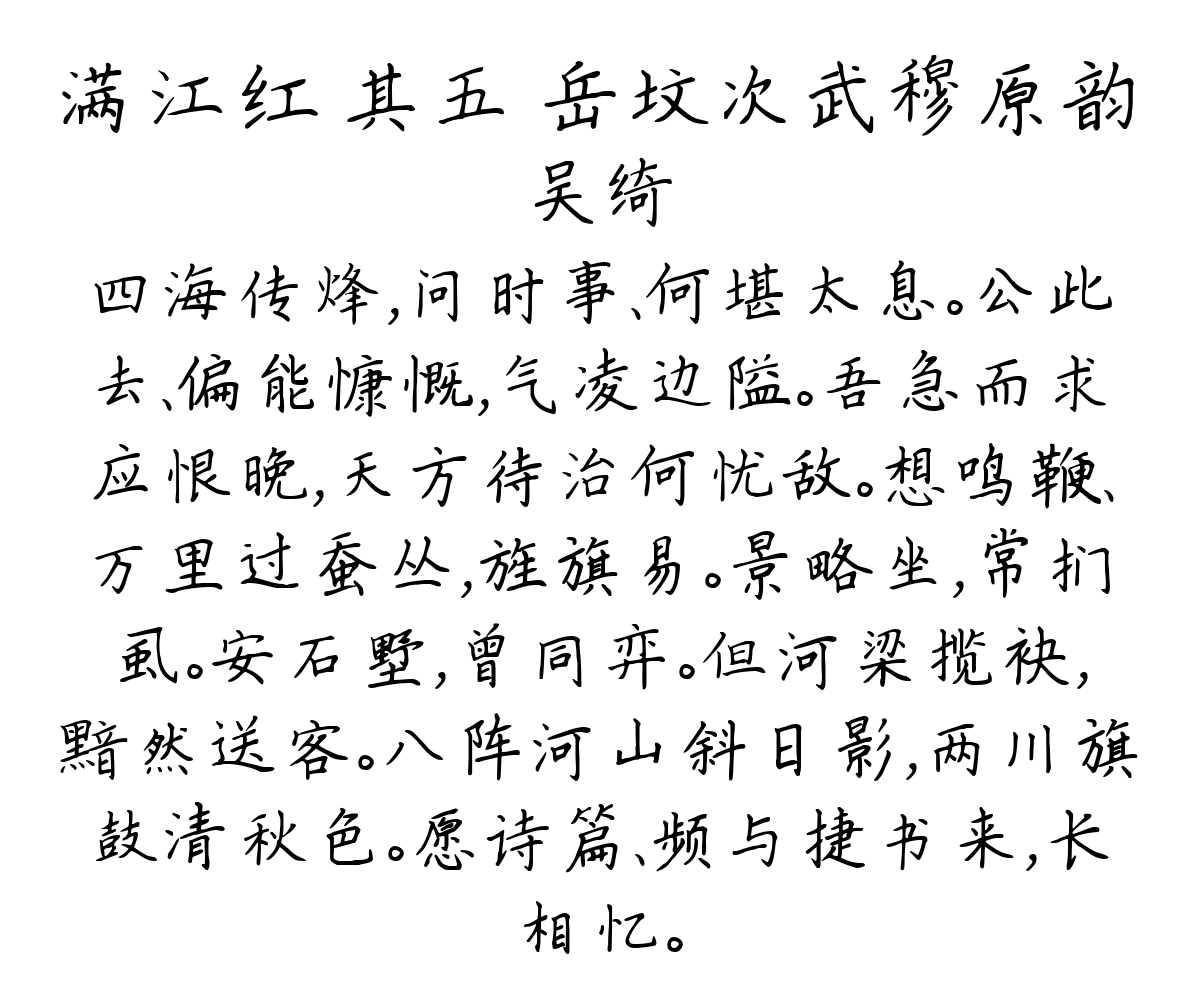 满江红 其五 岳坟次武穆原韵
吴绮
四海传烽,问时事、何堪太息。公此
去、偏能慷慨,气凌边隘。吾急而求
应恨晚,天方待治何忧敌。想鸣鞭、
万里过蚕丛,旌旗易。景略坐,常扪
虱。安石墅,曾同弈。但河梁揽袂,
黯然送客。八阵河山斜日影,两川旗
鼓清秋色。愿诗篇、频与捷书来,长
相忆。